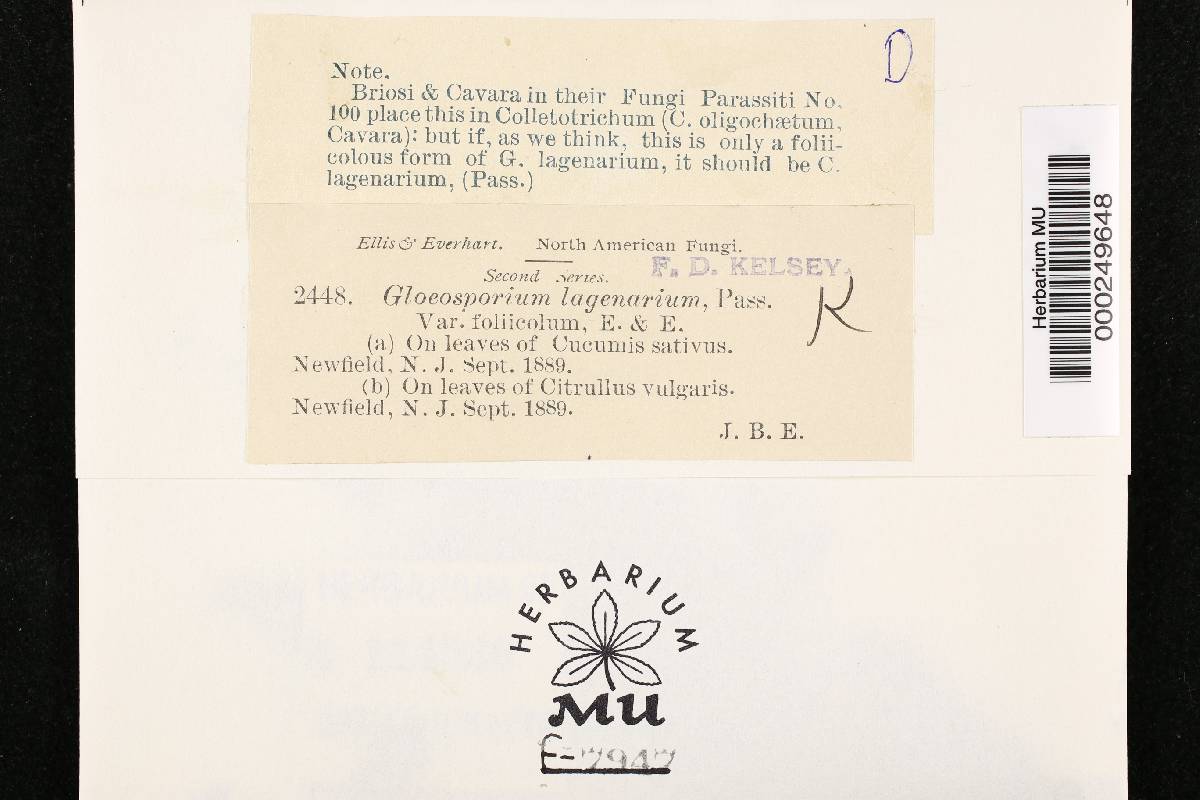 D
Note.
Briosi & Cavara in their Fungi Parassiti No.
100 place this in Colletotrichum (C. oligochætum,
Cavara): but if, as we think, this is only a folii-
colous form of G. lagenarium, it should be C.
lagenarium, (Pass.)
Ellis & Everhart. North American Fungi.
Second Series.
F. D. KELSEY.
K
2448. Gloeosporium lagenarium, Pass.
Var. foliicolum, E. & E.
(a) On leaves of Cucumis sativus.
Newfield, N. J. Sept. 1889.
(b) On leaves of Citrullus vulgaris.
Newfield, N. J. Sept. 1889.
J. B. E.
Herbarium MU
000249648
HERBARIUM
MU
F-7947